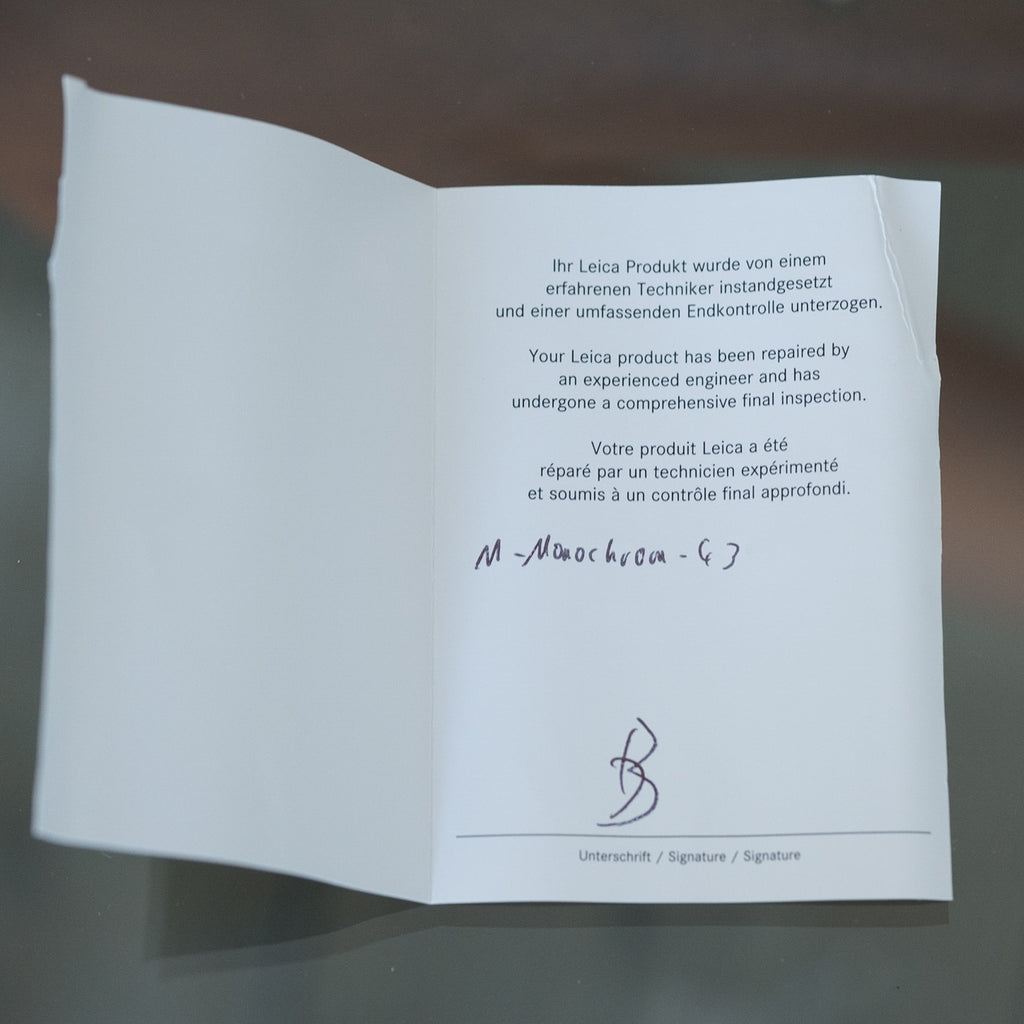 Ihr Leica Produkt wurde von einem
erfahrenen Techniker instandgesetzt
und einer umfassenden Endkontrolle unterzogen.
Your Leica product has been repaired by
an experienced engineer and has
undergone a comprehensive final inspection.
Votre produit Leica a été
réparé par un technicien expérimenté
et soumis à un contrôle final approfondi.
M-Monochrom-
Unterschrift / Signature / Signature